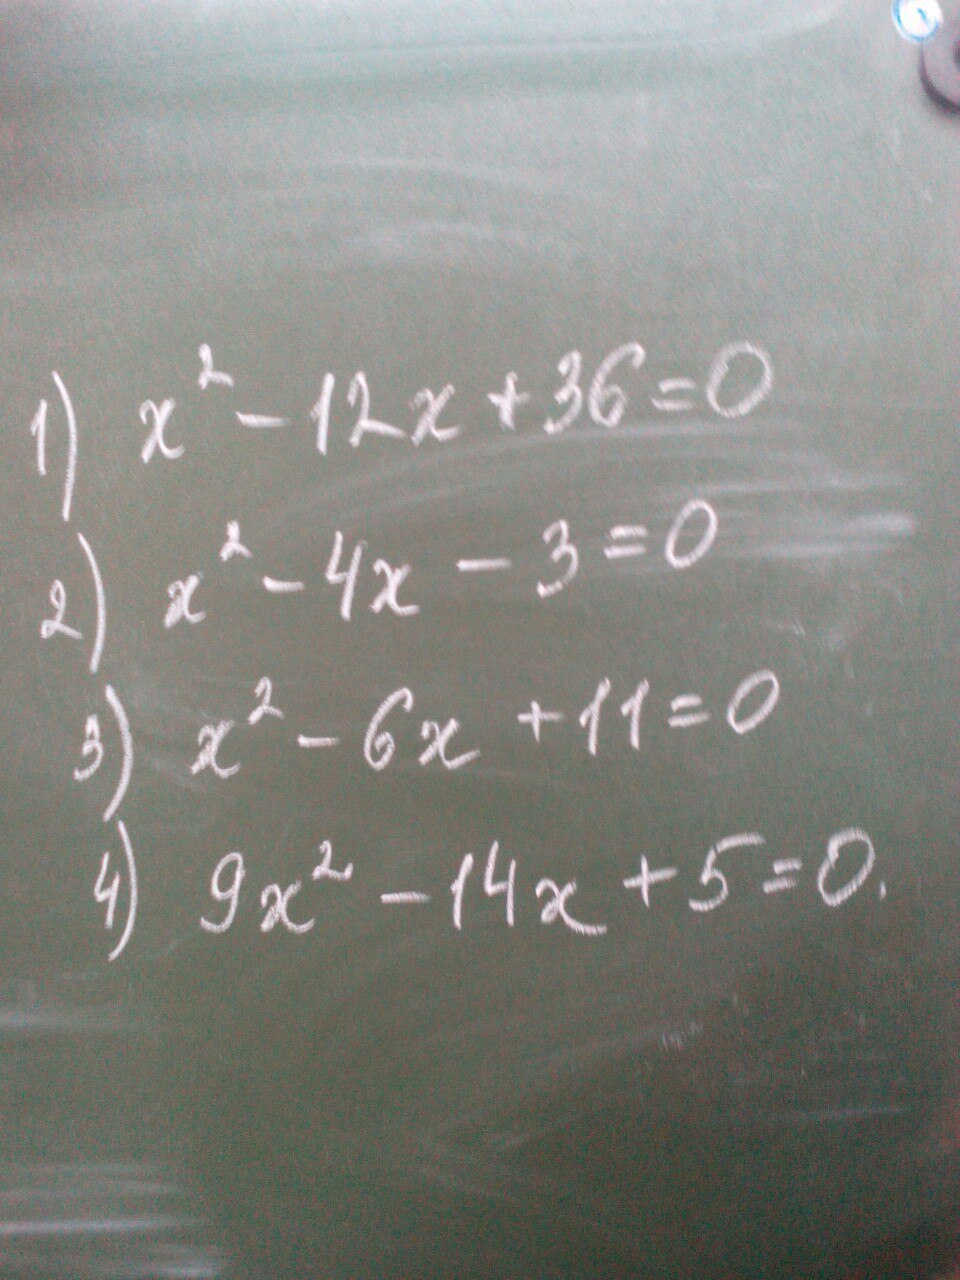 1) x² - 12x + 36 = 0
2) x² - 4x - 3 = 0
3) x² - 6x + 11 = 0
4) 9x² - 14x + 5 = 0.